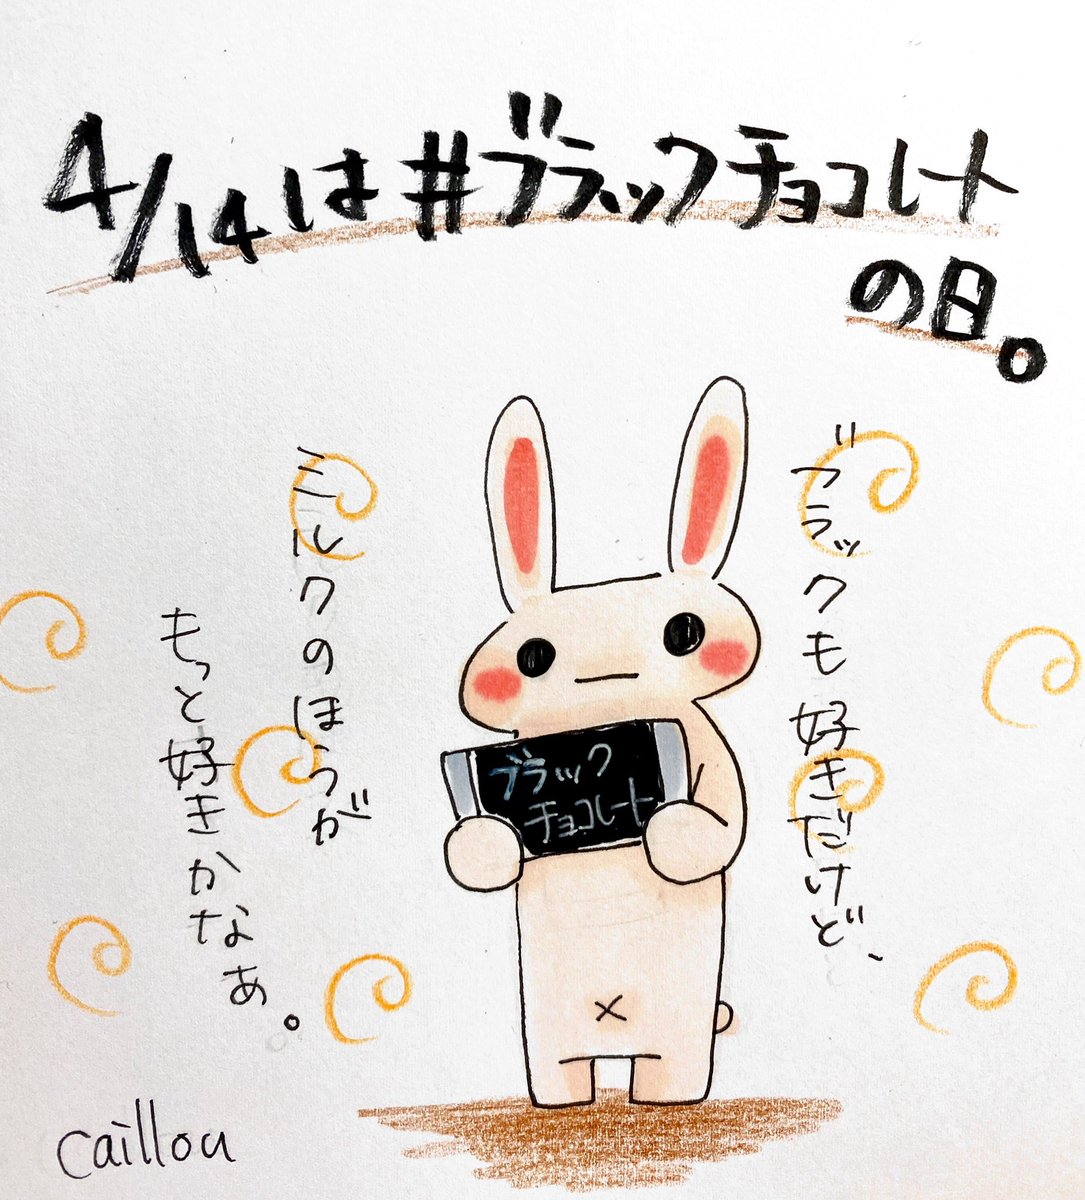 4/14は#ブラックチョコレート
の日。
ブラックも好きだけど、
ミルクのほうが
もっと好きかなぁ。
ブラック
チョコレート
caillou